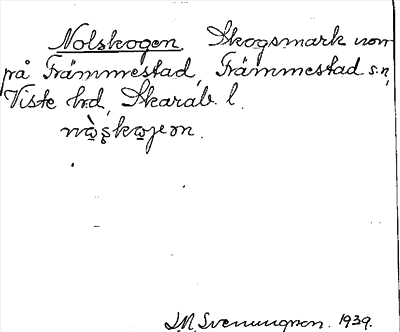 Nolskogen. Skogsmark norr
på Främmestad, Främmestad s:n,
Viste h:d, Skarab. l.
S.M. Svenungson. 1939.